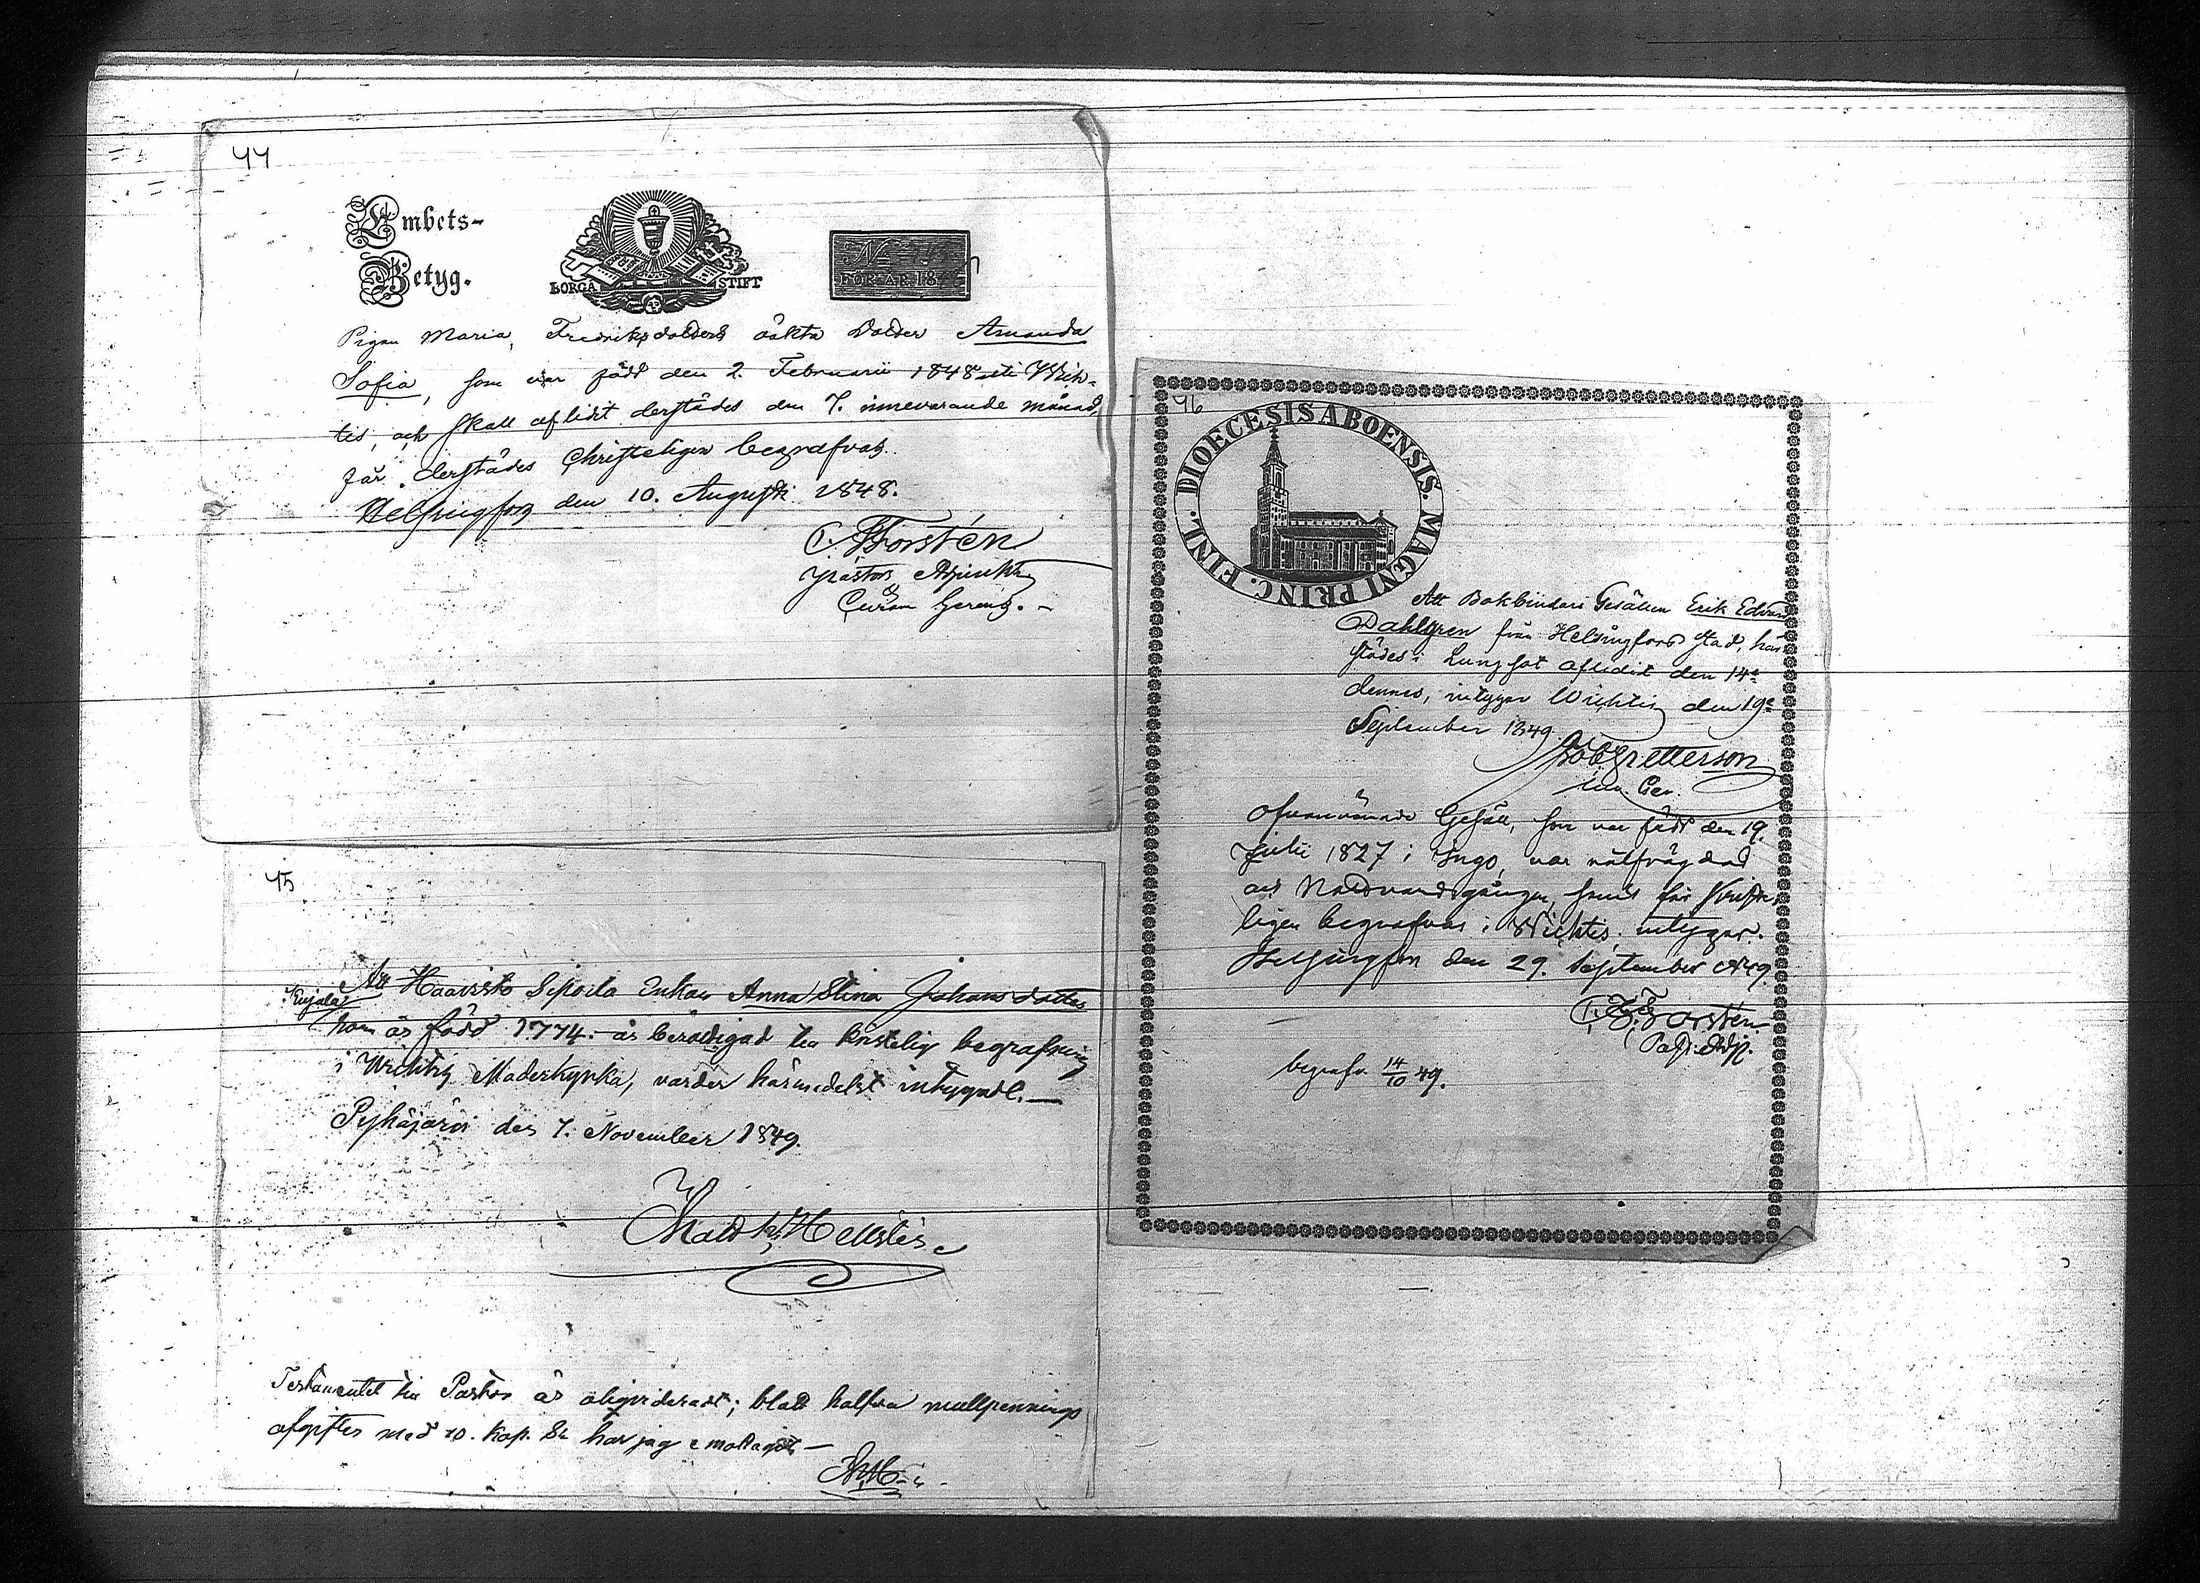 44
Embets-
Betyg.
BORGÅ STIFT
N
FÖR ÅR 18
Pigan Maria Fredriksdotters oäkta Dotter Amanda
Sofia, som var född den 2. Februarii 1848 uti Wich-
tis, och skall aflidit derstädes den 7. innevarande månad,
får derstädes Christeligen begrafvas.
Helsingfors den 10. Augusti 1848.
C. Forstén
Pastors Adjunkt
45
Att Haavisto Sipoila Enkan Anna Stina Johansdotter
Kujala
som är född 1774. är berättigad till kristelig begrafning
i Wichtis Moderkyrka, varder härmedelst intygadt. —
Pyhäjärvi den 7. November 1849.
Hellstén
Testamentet till Pastor är oliqvideradt; blott halfva mullpennings
afgiften med 10. kop. Sr har jag emottagit —
46
DIOECESIS ABOENSIS. MAGNI PRINC. FINL.
Att Bokbindare Gesällen Erik Edvard
Dahlgren från Helsingfors stad, här-
städes i Lungsot aflidit den 14e
dennes, intygar Wichtis den 19e
September 1849.
Petterson
ofvannämnde Gesäll, som var född den 19.
Julii 1827 i Ingo, var välfrägdad
och Nattvardsgången, samt får kriste-
ligen begrafvas i Wichtis, intygar.
Helsingfors den 29. September 1849.
C. F. Forstén
Past. Adj.
begrafv. 14/10 49.